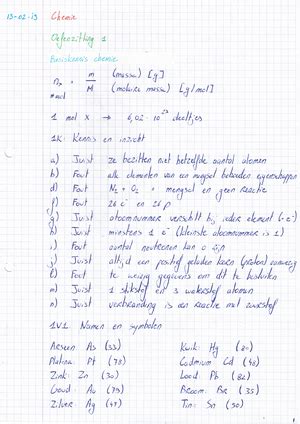 13-02-13 Chemie
Oefenzitting 1
Basiskennis chemie
nₓ = m (massa) [g]
#mol M (molaire massa) [g/mol]
1 mol X → 6,02 · 10²³ deeltjes
1K: Kennis en inzicht
a) Juist ze bezitten niet hetzelfde aantal atomen
b) Fout alle elementen van een mengsel behouden eigenschappen
d) Fout N₂ + O₂ = mengsel en geen reactie
f) Fout 26 e⁻ en 26 p
g) Juist atoomnummer verschilt bij ieder element
h) Juist minstens 1 e⁻ (kleinste atoomnummer is 1)
i) Fout aantal neutronen kan 0 zijn
j) Juist altijd een positief geladen kern (proton) aanwezig
l) Fout te weinig gegevens om dit te besluiten
m) Juist 1 stikstof en 3 waterstof atomen
n) Juist verbranding is een reactie met zuurstof
1V1: Namen en symbolen
Arseen: As (33) Kwik: Hg (80)
Platina: Pt (78) Cadmium: Cd (48)
Zink: Zn (30) Lood: Pb (82)
Goud: Au (79) Broom: Br (35)
Zilver: Ag (47) Tin: Sn (50)